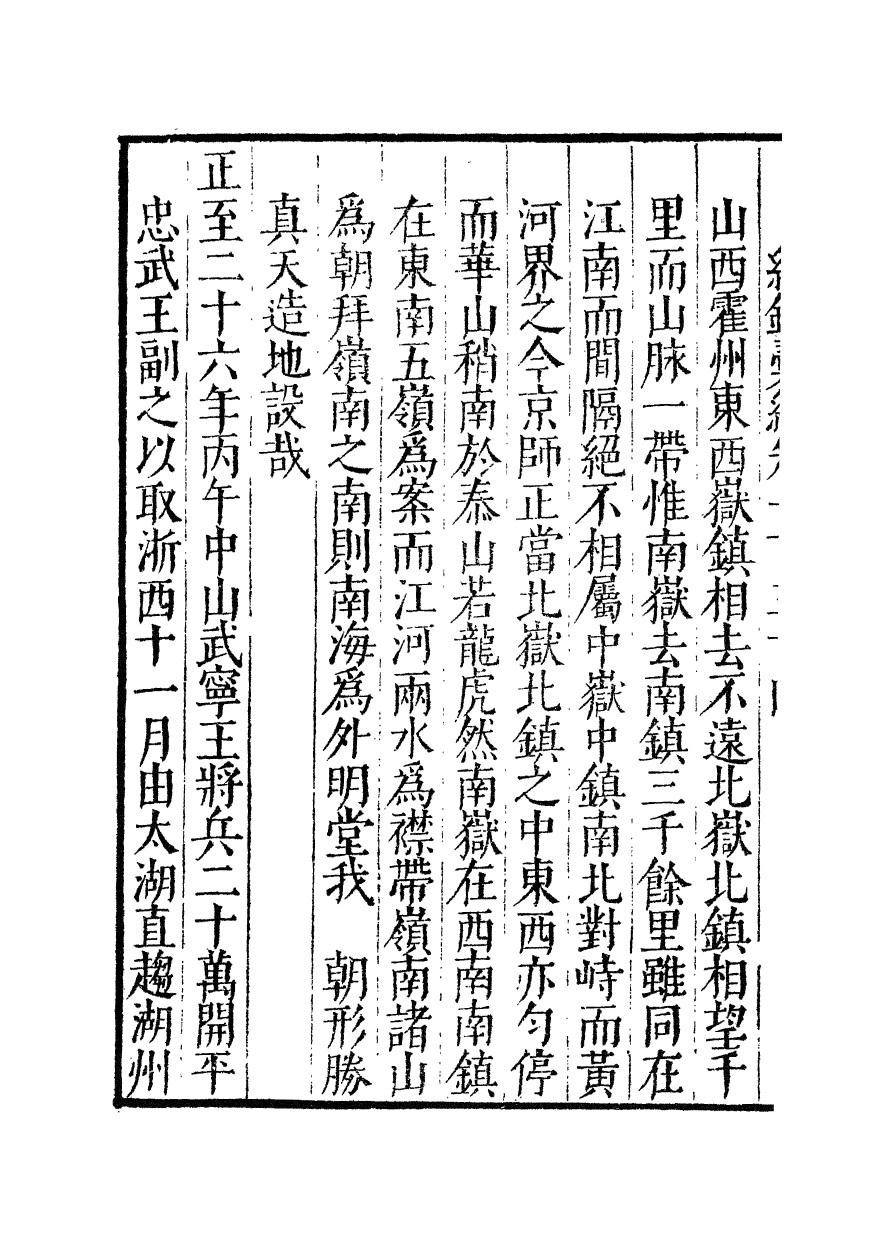 山西霍州東西嶽鎮相去不遠北嶽北鎮相望千
里而山脉一帶惟南嶽去南鎮三千餘里雖同在
江南而間隔絕不相屬中嶽中鎮南北對峙而黃
河界之今京師正當北嶽北鎮之中東西亦勻停
而華山稍南於泰山若龍虎然南嶽在西南南鎮
在東南五嶺爲案而江河兩水爲襟帶嶺南諸山
爲朝拜嶺南之南則南海爲外明堂我　朝形勝
真天造地設哉
正至二十六年丙午中山武寧王將兵二十萬開平
忠武王副之以取浙西十一月由太湖直趨湖州